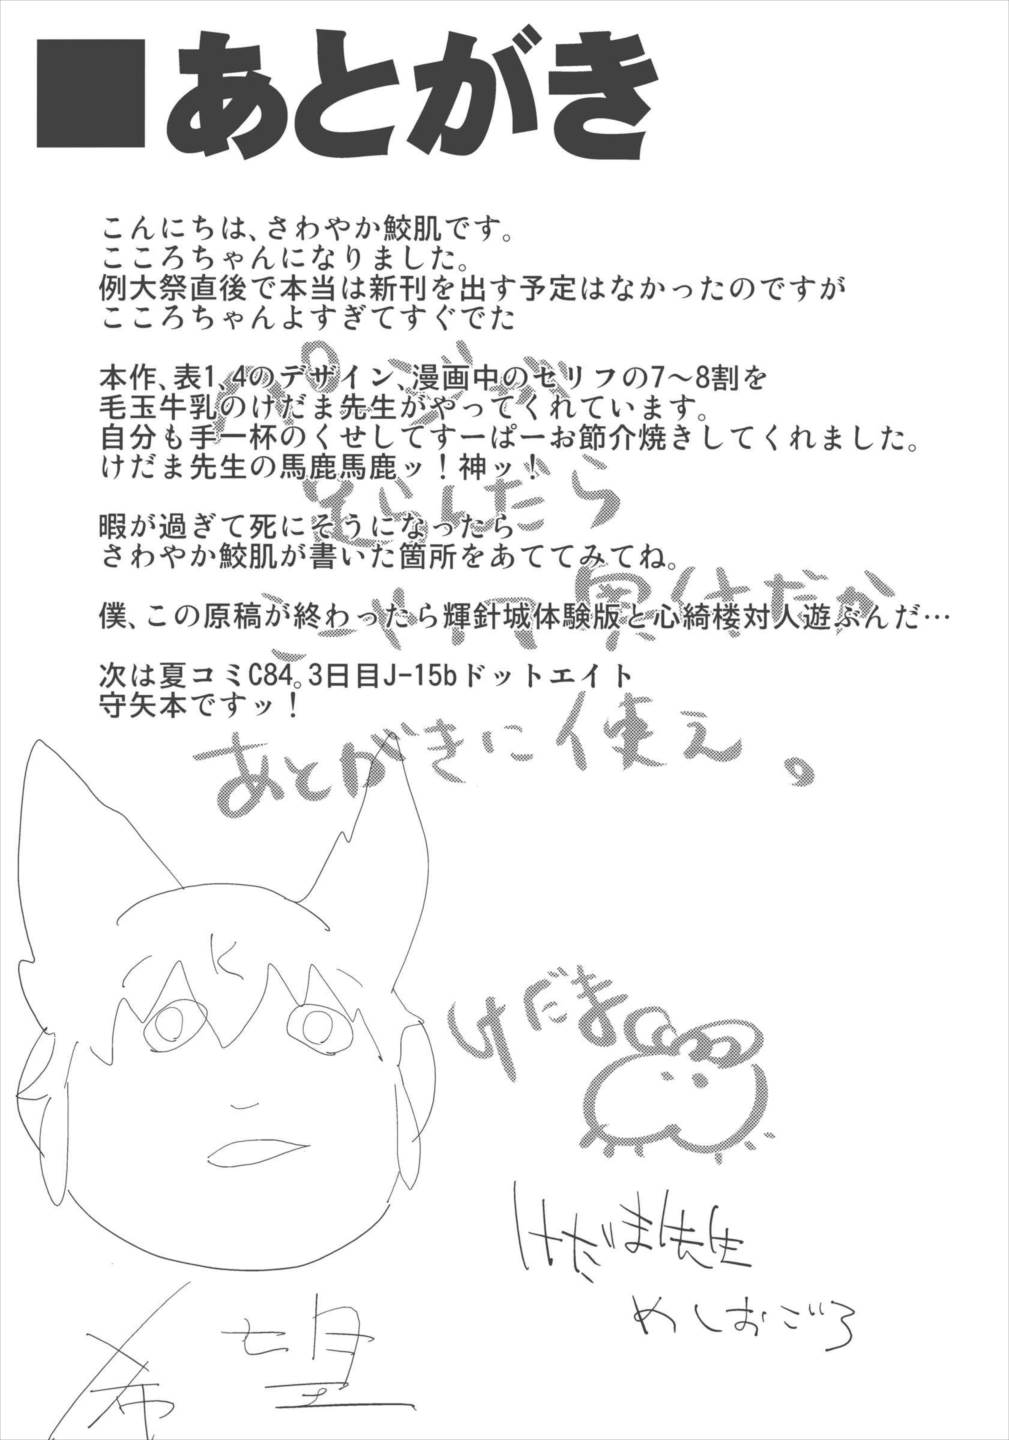 ■あとがき
こんにちは、さわやか鮫肌です。
こころちゃんになりました。
例大祭直後で本当は新刊を出す予定はなかったのですが
こころちゃんよすぎてすぐでた
本作、表1、4のデザイン、漫画中のセリフの7～8割を
毛玉牛乳のけだま先生がやってくれています。
自分も手一杯のくせしてすーぱーお節介焼きしてくれました。
けだま先生の馬鹿馬鹿ッ！神ッ！
暇が過ぎて死にそうになったら
さわやか鮫肌が書いた箇所をあててみてね。
僕、この原稿が終わったら輝針城体験版と心綺楼対人遊ぶんだ…
次は夏コミC84。3日目J-15bドットエイト
守矢本ですッ！
ページが
足らんだら
あとがきに使え。
K
けだま
けだま先生
めしおごろ
希望